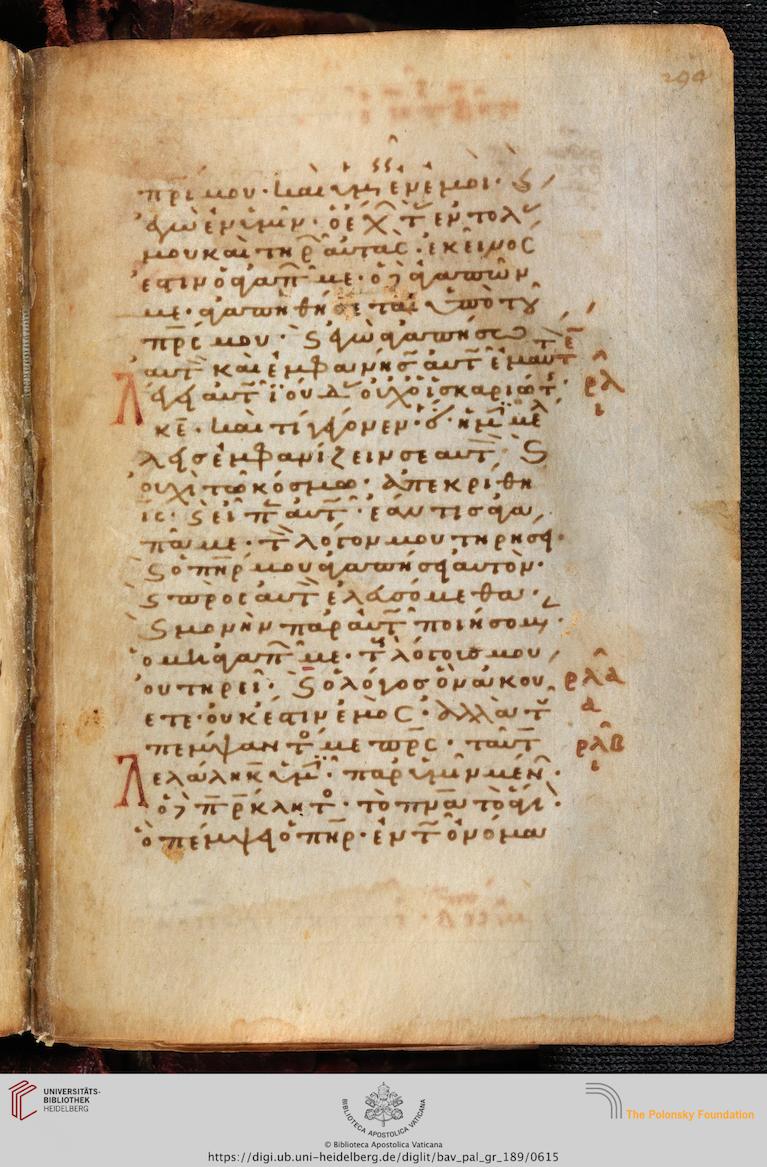 294
πρι μου· καὶ ὑμ ἐν ἐμοί· ϛ
ἐγὼ ἐν ὑμῖν· ὁ ἔχ τ ἐντολ
μου καὶ τηρ αὐτάς· ἐκεῖνος
ἐστιν ὁ ἀγαπ με· ὁ ἀγαπῶν
με· ἀγαπηθήσεται ὑπὸ τοῦ
πρς μου· ϛ ἐγὼ ἀγαπήσω
αὐτ καὶ ἐμφανήσ αὐτ ἐμαυτ
Λέγει αὐτ ἰούδ οὐχ ὁ ἰσκαριώτ
ρλ
ι
κε· καὶ τί γέγονεν· ὅ ἡμῖ μέλ
λεισ ἐμφανίζειν σεαυτ ϛ
οὐχὶ τῶ κόσμω· ἀπεκρίθη
ις· ϛ εἶπ αὐτ· ἐάν τις ἀγα
πᾶ με· τ λόγον μου τηρήσει·
ϛ ὁ πηρ μου ἀγαπήσει αὐτόν·
ϛ πρὸς αὐτ ἐλευσόμεθα·
ϛ μονὴν παρ αὐτ ποιήσομ
ὁ μὴ ἀγαπ με· τ λόγουσ μου
οὐ τηρεῖ· ϛ ὁ λόγος ὃν ἀκού
ρλα
α
ετε· οὐκ ἔστιν ἐμός· ἀλλὰ τ
πέμψαντ με πρς· ταῦτ
ρλβ
ι
Λελάληκ ὑμῖ· παρ ὑμῖν μέν·
ὁ πρκλητ· τὸ πνα τὸ ἅγι·
ὃ πέμψει ὁ πηρ· ἐν τ ὀνόμα
UNIVERSITÄTS-
BIBLIOTHEK
HEIDELBERG
BIBLIOTECA APOSTOLICA VATICANA
The Polonsky Foundation
© Biblioteca Apostolica Vaticana
https://digi.ub.uni-heidelberg.de/diglit/bav_pal_gr_189/0615